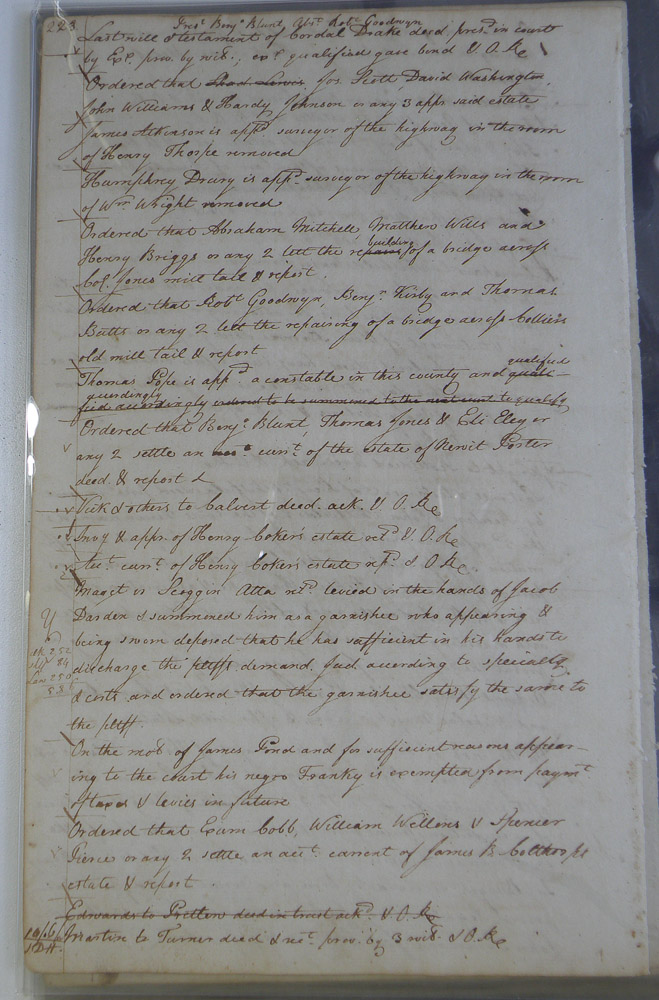 223
Pres.t Benj.a Blunt, Wm. Rob.t Goodwyn
Last will & testament of Cordal Drake deed pres.d in court
by Ex.r prov. by wit.; ex.r qualified gave bond & O. Re
Ordered that Jos. Scott, David Washington,
John Williams & Hardy Johnson or any 3 appr said estate
James Atkinson is app.d surveyor of the highway in the room
of Henry Thorpe removed
Humphrey Drury is app.d surveyor of the highway in the room
of Wm Wright removed
Ordered that Abraham Mitchell, Matthew Wills and
Henry Briggs or any 2 lett the repairs building of a bridge across
Col. Jones mill tail & report.
Ordered that Rob.t Goodwyn, Benj.n Kirby and Thomas
Batts or any 2 lett the repairing of a bridge across Collier's
old mill tail & report
Thomas Pope is app.d a constable in this county and quali- qualified
fied accordingly ordered to be summoned to the next court to qualify
accordingly
Ordered that Benj.a Blunt Thomas Jones & Eli Eley or
any 2 settle an curr.t of the estate of Porter
deed. & report
Vick & others to Calvert deed. ack. & O. Re
Invy & appr. of Henry Coker's estate ret.d & O. Re
Acc.t curr.t of Henry Coker's estate ret.d & O Re
Maget vs Scoggin Atta ret.d levied in the hands of Jacob
Darden & summoned him as a garnishee who appearing &
being sworn deposed that he has sufficient in his hands to
discharge the pltffs demand. Jud. according to specialty
& costs and ordered that the garnishee satisfy the same to
the pltff.
On the mot.n of James Pond and for sufficient reasons appear-
ing to the court his negro Franky is exempted from paym.t
of taxes & levies in future
Ordered that Exum Cobb, William Wellons & Spencer
Pierce or any 2 settle an acc.t current of James B. Calthorpes
estate & report
Edwards to Pretlow deed in trust ack.d & O. Re
Martin to Turner deed & rec.t prov. by 3 wit. & O. Re